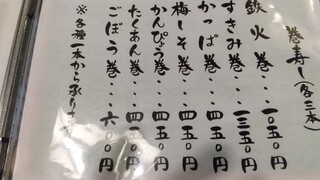 巻寿し(各三本)
鉄火巻・・・一〇五〇円
すきみ巻・・・一三五〇円
かっぱ巻・・・四五〇円
梅しそ巻・・・四五〇円
かんぴょう巻・・・四五〇円
たくあん巻・・・四五〇円
ごぼう巻・・・六〇〇円
※各種一本から承ります